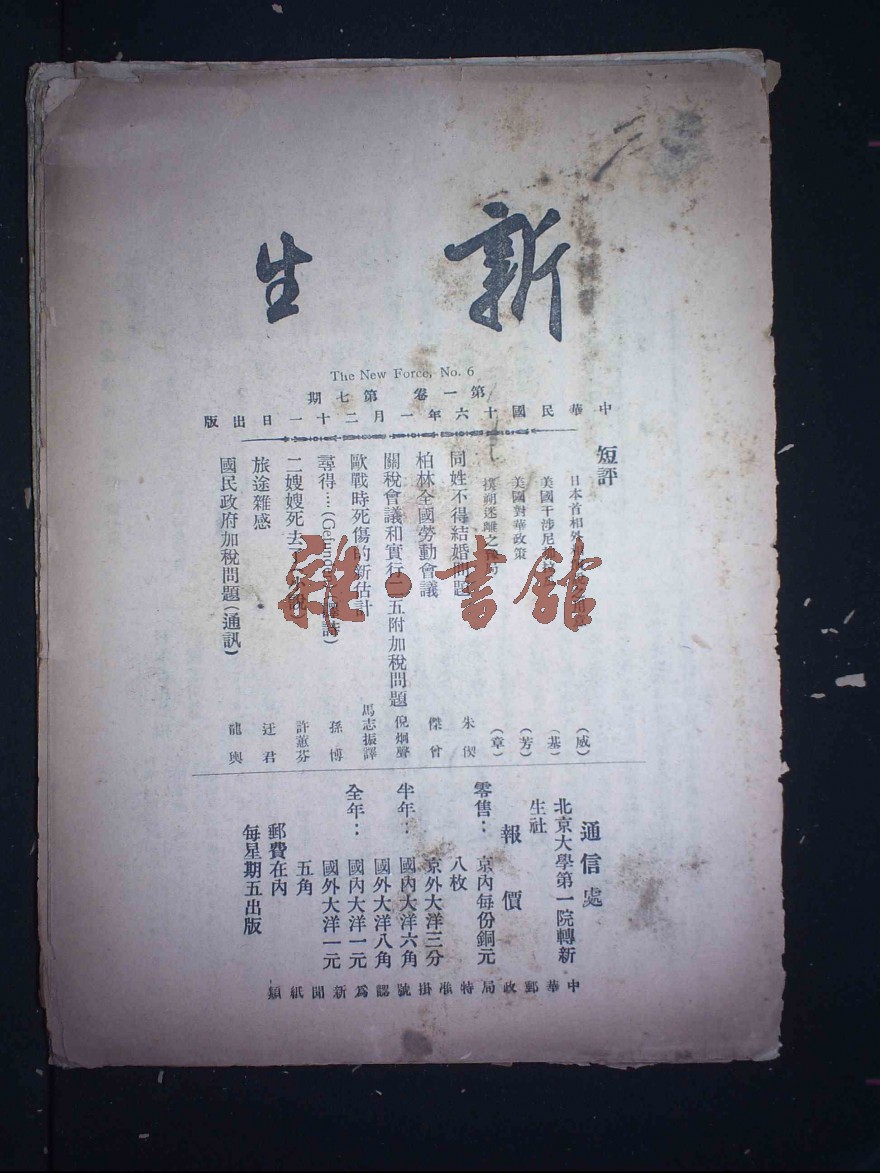 新生
The New Force, No. 6
第一卷 第七期
中華民國十六年一月二十一日出版
短評
日本首相外
(威)
美國干涉尼
(基)
美國對華政策
(芳)
撲朔迷離之
(章)
同姓不得結婚問題
朱偰
柏林全國勞動會議
傑曾
關稅會議和實行二五附加稅問題
倪炯聲
歐戰時死傷的新估計
馬志振譯
尋得....(Gefunden)
孫博
二嫂嫂死去了
許蕙芬
旅途雜感
迋君
國民政府加稅問題(通訊)
龍輿
通信處
北京大學第一院轉新
生社
報價
零售:京內每份銅元
八枚
京外大洋三分
半年:國內大洋六角
國外大洋八角
全年:國內大洋一元
國外大洋一元
五角
郵費在內
每星期五出版
中華郵政局特准掛號認爲新聞紙類
雜·書館